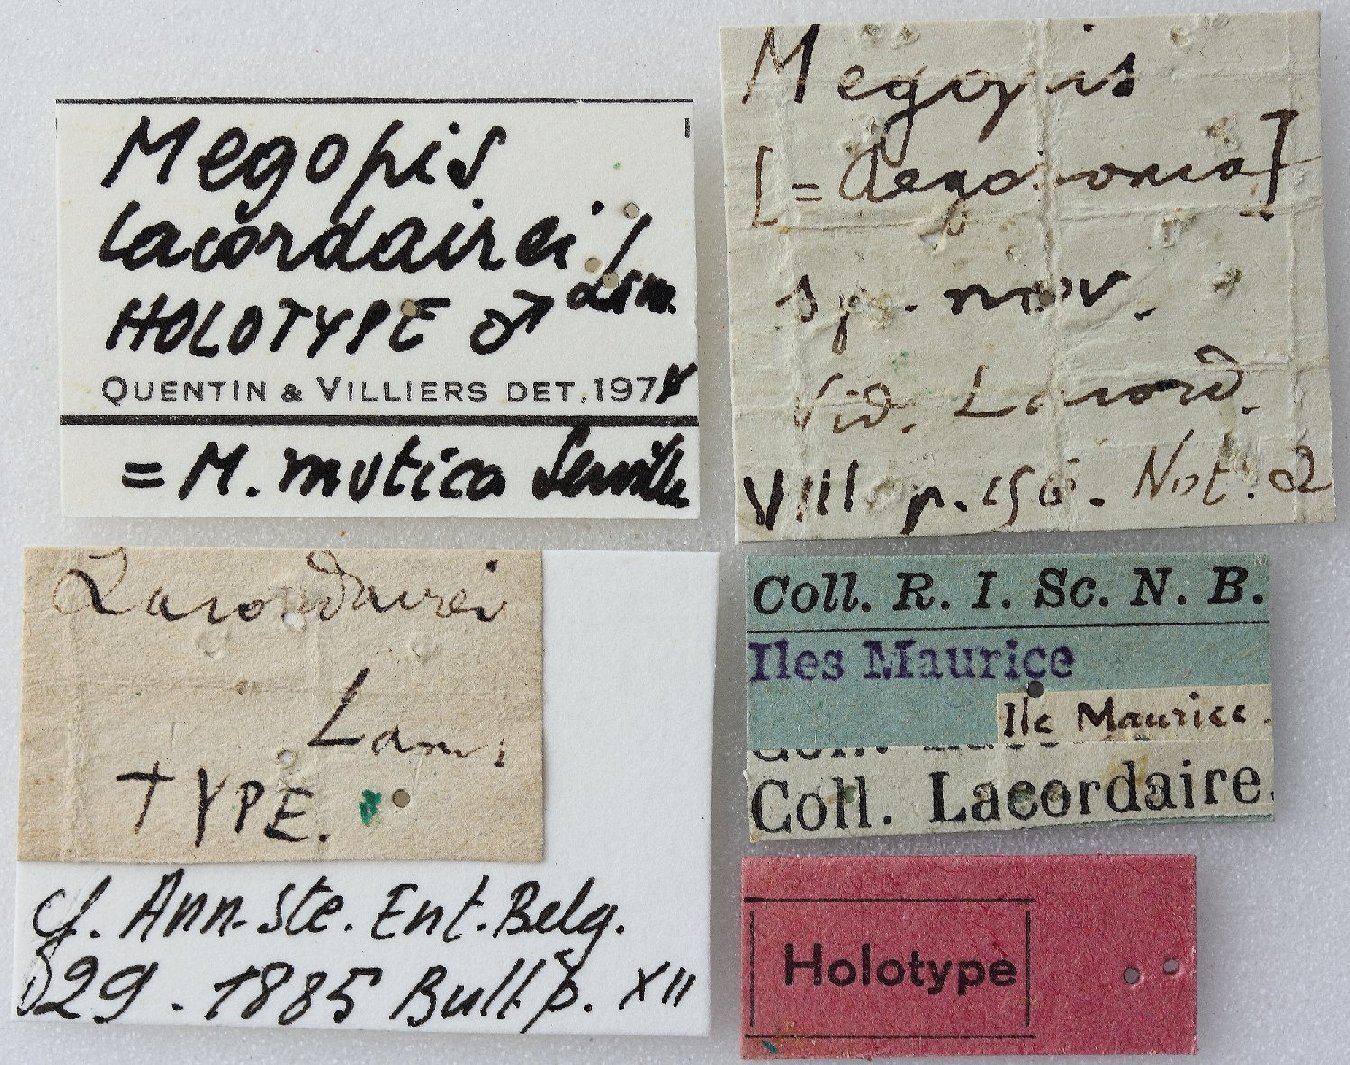 Megopis
lacordairei
Lam.
HOLOTYPE ♂
QUENTIN & VILLIERS DET. 197
= M. mutica Serville
Megopis
[= Aegosoma]
sp. nov.
Vid. Lacord.
VIII p. 156. Not. 2
Lacordairei
Lam.
TYPE.
cf. Ann. Ste. Ent. Belg.
29. 1885 Bull. p. XII
Coll. R. I. Sc. N. B.
Iles Maurice
Ile Maurice.
Coll. Lacordaire.
Holotype